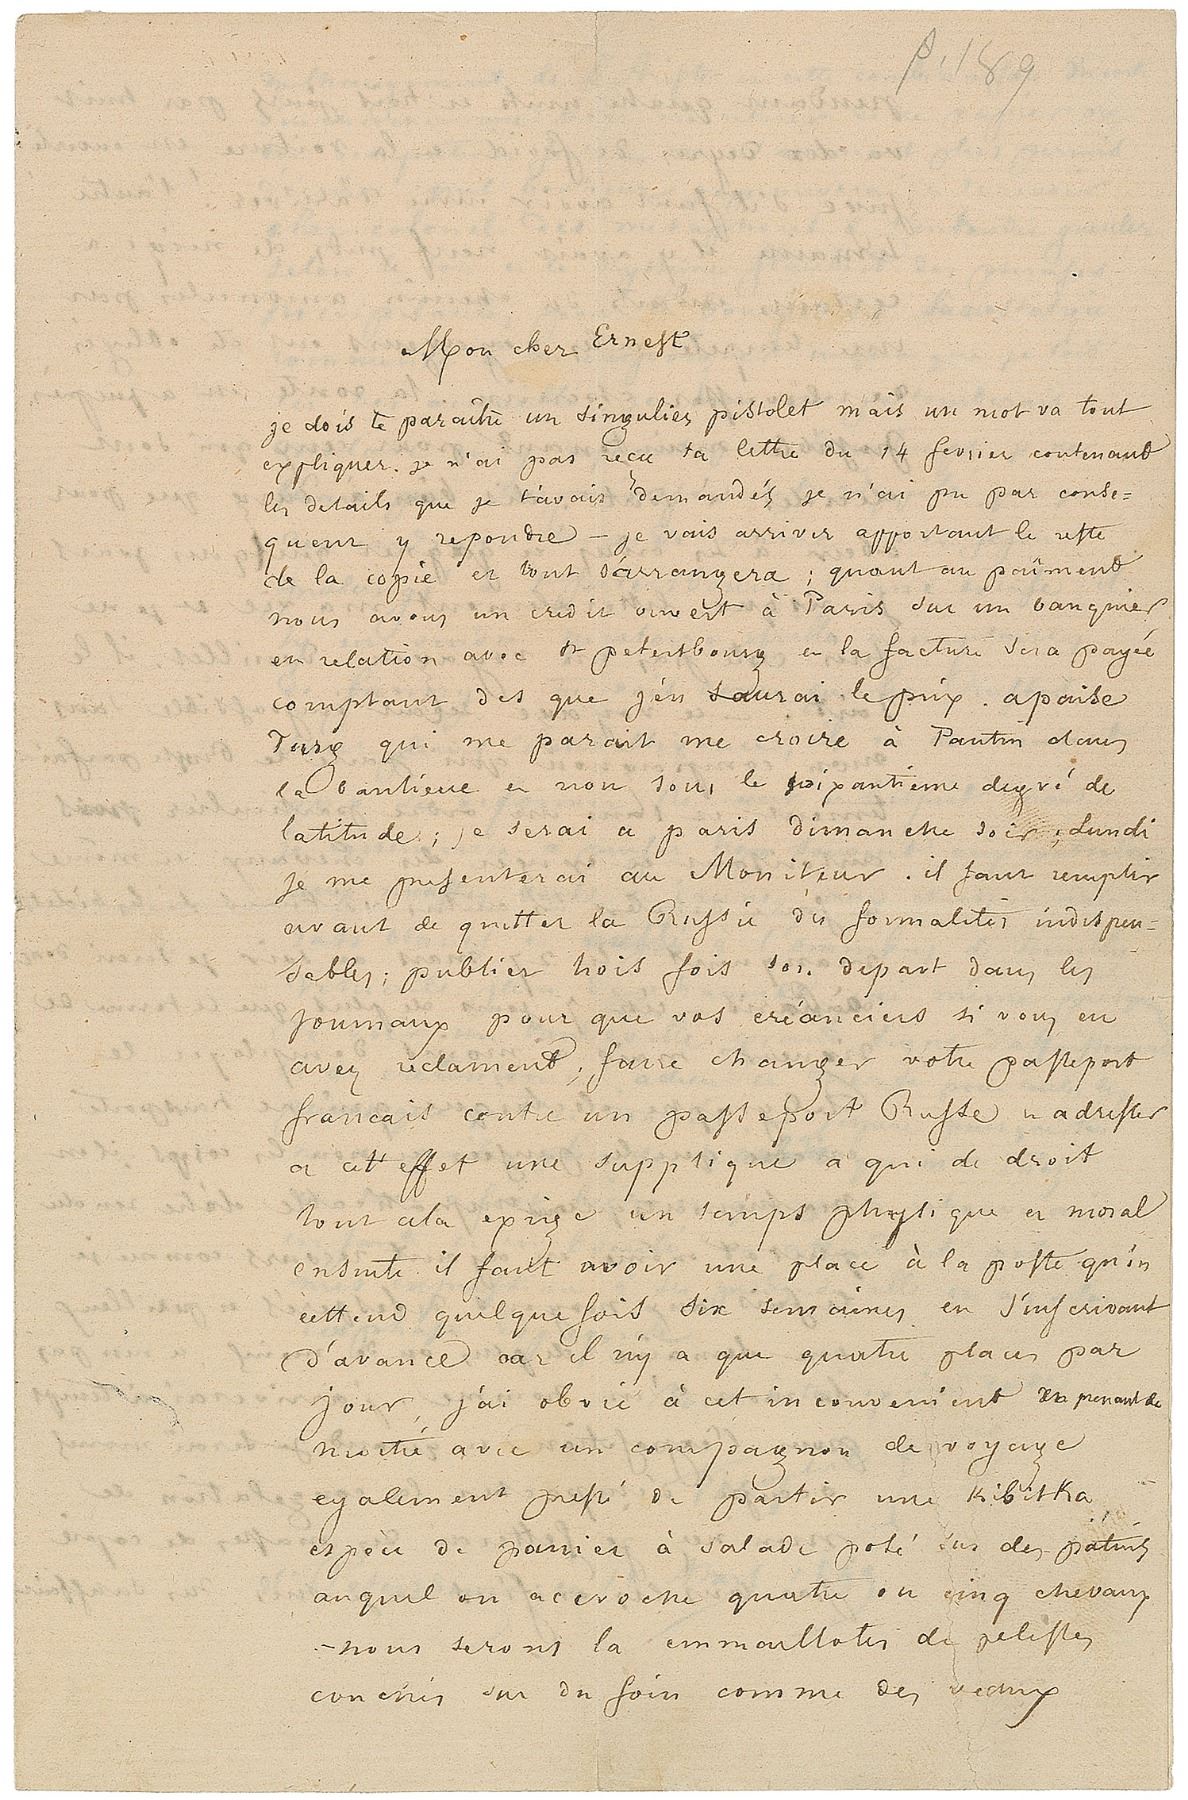 p. 189
Mon cher Ernest
je dois te paraitre un singulier pistolet mais un mot va tout
expliquer. je n'ai pas recu ta lettre du 14 fevrier contenant
les details que je t'avais demandés je n'ai pu par conse=
quent y repondre – je vais arriver apportant le reste
de la copie et tout s'arrangera ; quant au païment
nous avons un credit ouvert à Paris sur un banquier
en relation avec st petersbourg et la facture sera payée
comptant des que j'en saurai le prix . apaise
Turg qui me parait me croire à Pantin dans
la banlieue et non sous le soixantieme degré de
latitude ; je serai a paris dimanche soir ; Lundi
je me presenterai au Moniteur . il faut remplir
avant de quitter la Russie des formalités indispen-
sables ; publier trois fois son depart dans les
journaux pour que vos créanciers si vous en
avez reclament ; faire changer votre passeport
francais contre un passeport Russe et adresser
a cet effet une supplique a qui de droit
tout cela exige un temps physique et moral
ensuite il faut avoir une place à la poste qu'on
attend quelque fois six semaines en s'inscrivant
d'avance car il n'y a que quatre places par
jour, j'ai obvié à cet inconvenient en prenant de
moitié avec un compagnon de voyage
egalement pressé de partir une Kibitka
espece de panier à salade posé sur des patins
auquel on accroche quatre ou cinq chevaux
– nous serons la emmaillotés de pelisses
couchés sur du foin comme des veaux